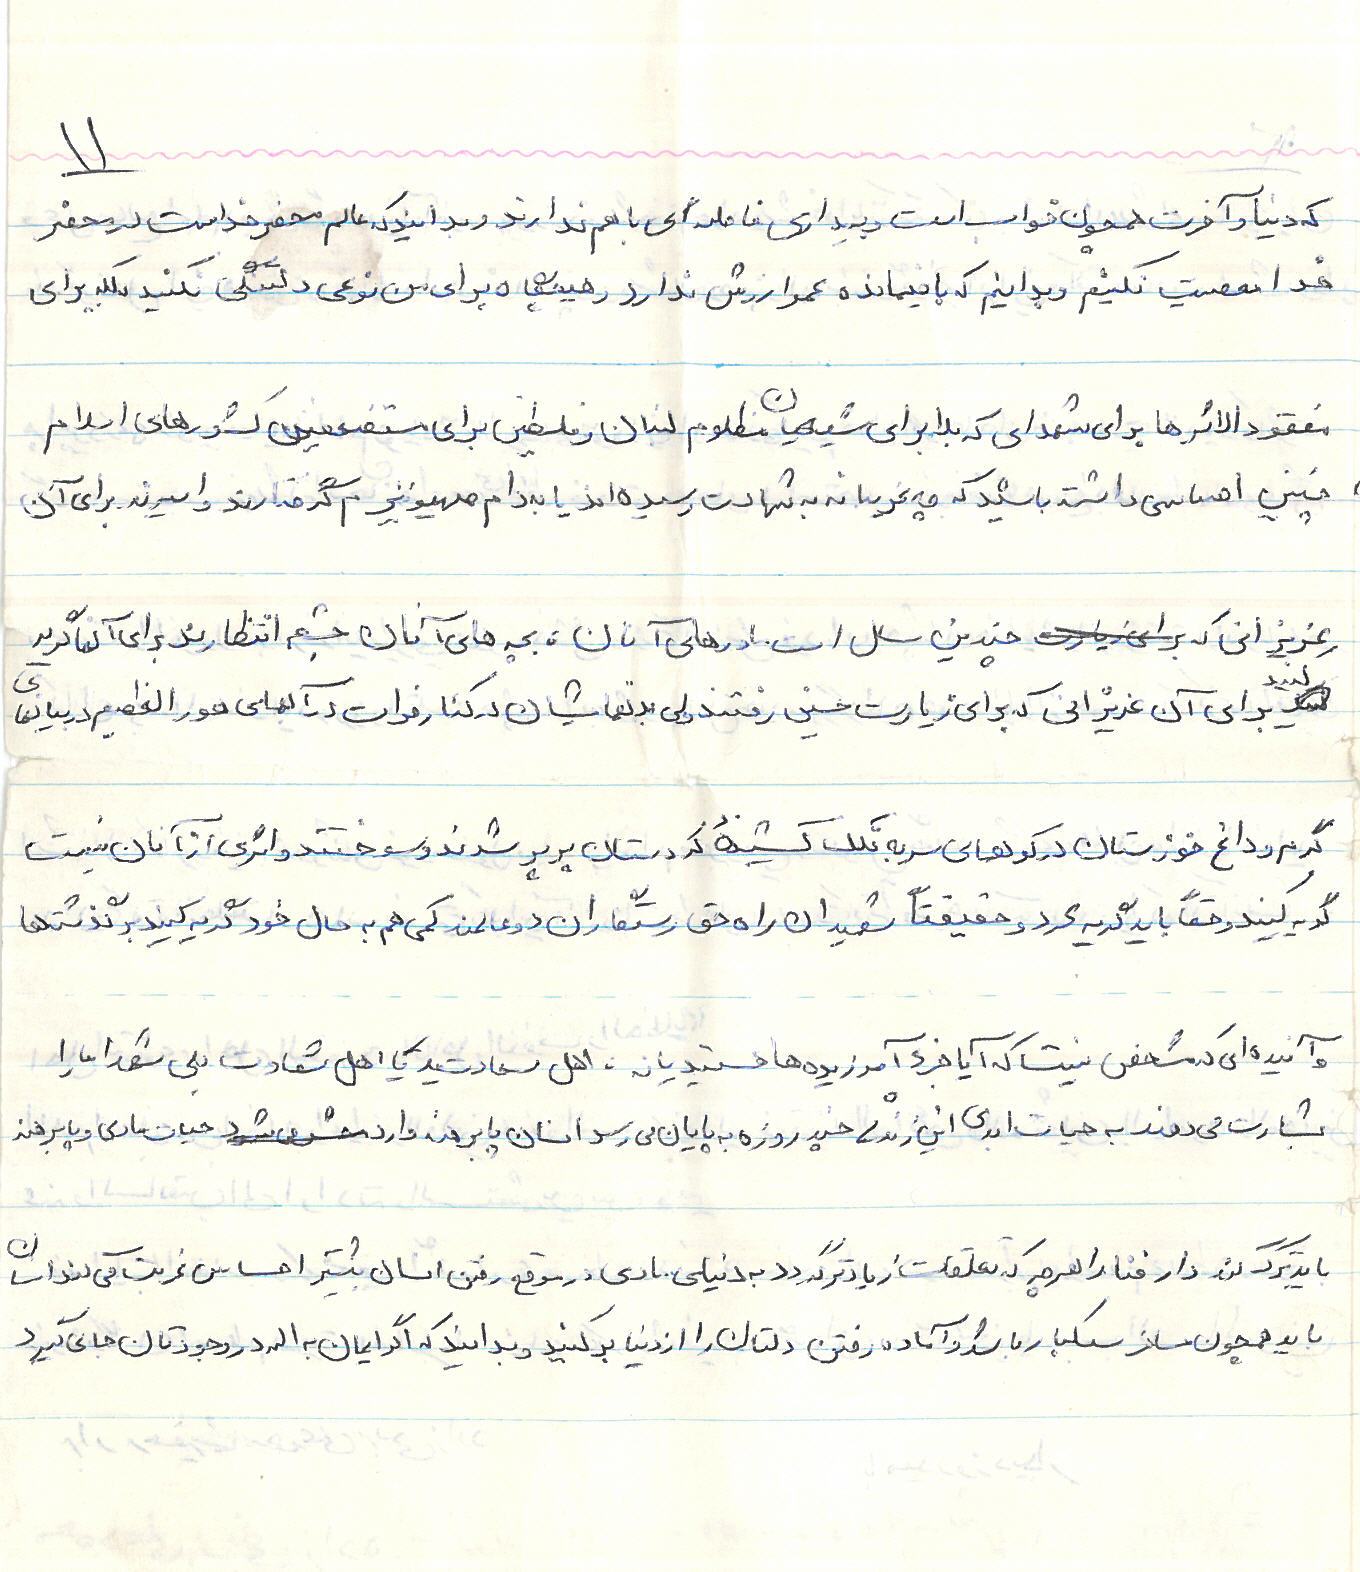 که دنیا و آخرت همچون خواب است و بیداری فاصله ای با هم ندارند و بدانید که عالم محضر خداست در محضر
خدا معصیت نکنیم و بدانیم که باقیمانده عمر ارزش ندارد و هیچگاه برای من نوعی دلتنگی نکنید بلکه برای
مفقودالاثرها برای شهدای کربلا برای شیعیان مظلوم لبنان و فلسطین برای مستضعفین کشورهای اسلام
چنین احساسی داشته باشید که چه غریبانه به شهادت رسیده اند یا به دام صهیونیزم گرفتارند و اسیرند برای آن
عزیزانی که چندین سال است مادرهای آنان، بچه های آنان چشم انتظارند برای آنها گریه
کنید برای آن عزیزانی که برای زیارت حسین رفتند ولی بدنهاشان در کنار فرات در آبهای هورالعظیم در بیابانهای
گرم و داغ خوزستان در کوههای سر به فلک کشیده کردستان پرپر شدند و سوختند و اثری از آنان نیست
گریه کنید و حقاً باید گریه کرد و حقیقتاً شهیدان راه حق رستگاران دو عالمند کمی هم به حال خود گریه کنید بر گذشته ها
و آینده ای که مشخص نیست که آیا جزء آمرزیده ها هستید یا نه، اهل سعادتید یا اهل شقاوت بلی شهدا ما را
بشارت می دهند به حیات ابدی این زندگی چند روزه به پایان می رسد انسان پابرهنه وارد حیات مادی و پابرهنه
باید ترک کند دار فنا را هرچه که تعلقات زیادتر گردد به دنیای مادی در موقع رفتن انسان بیشتر احساس غربت می کند انسان
باید همچون مسافر سبکبار باشد و آماده رفتن دلتان را از دنیا بر کنید و بدانید که اگر ایمان به الله در وجودتان جای گیرد